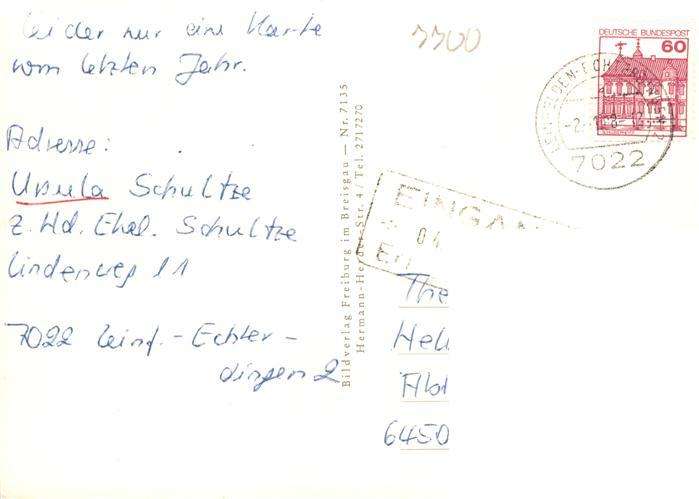 leider nur eine Karte
vom letzten Jahr.
Adresse:
Ursula Schultze
z. Hd. Ehel. Schultze
Lindenweg 11
7022 Leinf.-Echter-
dingen 2
Bildverlag Freiburg im Breisgau — Nr. 7135
Hermann-Herder-Str. 4 / Tel. 2717270
7700
DEUTSCHE BUNDESPOST
60
7022
EINGAN
04
The
Hel
Abt
6450